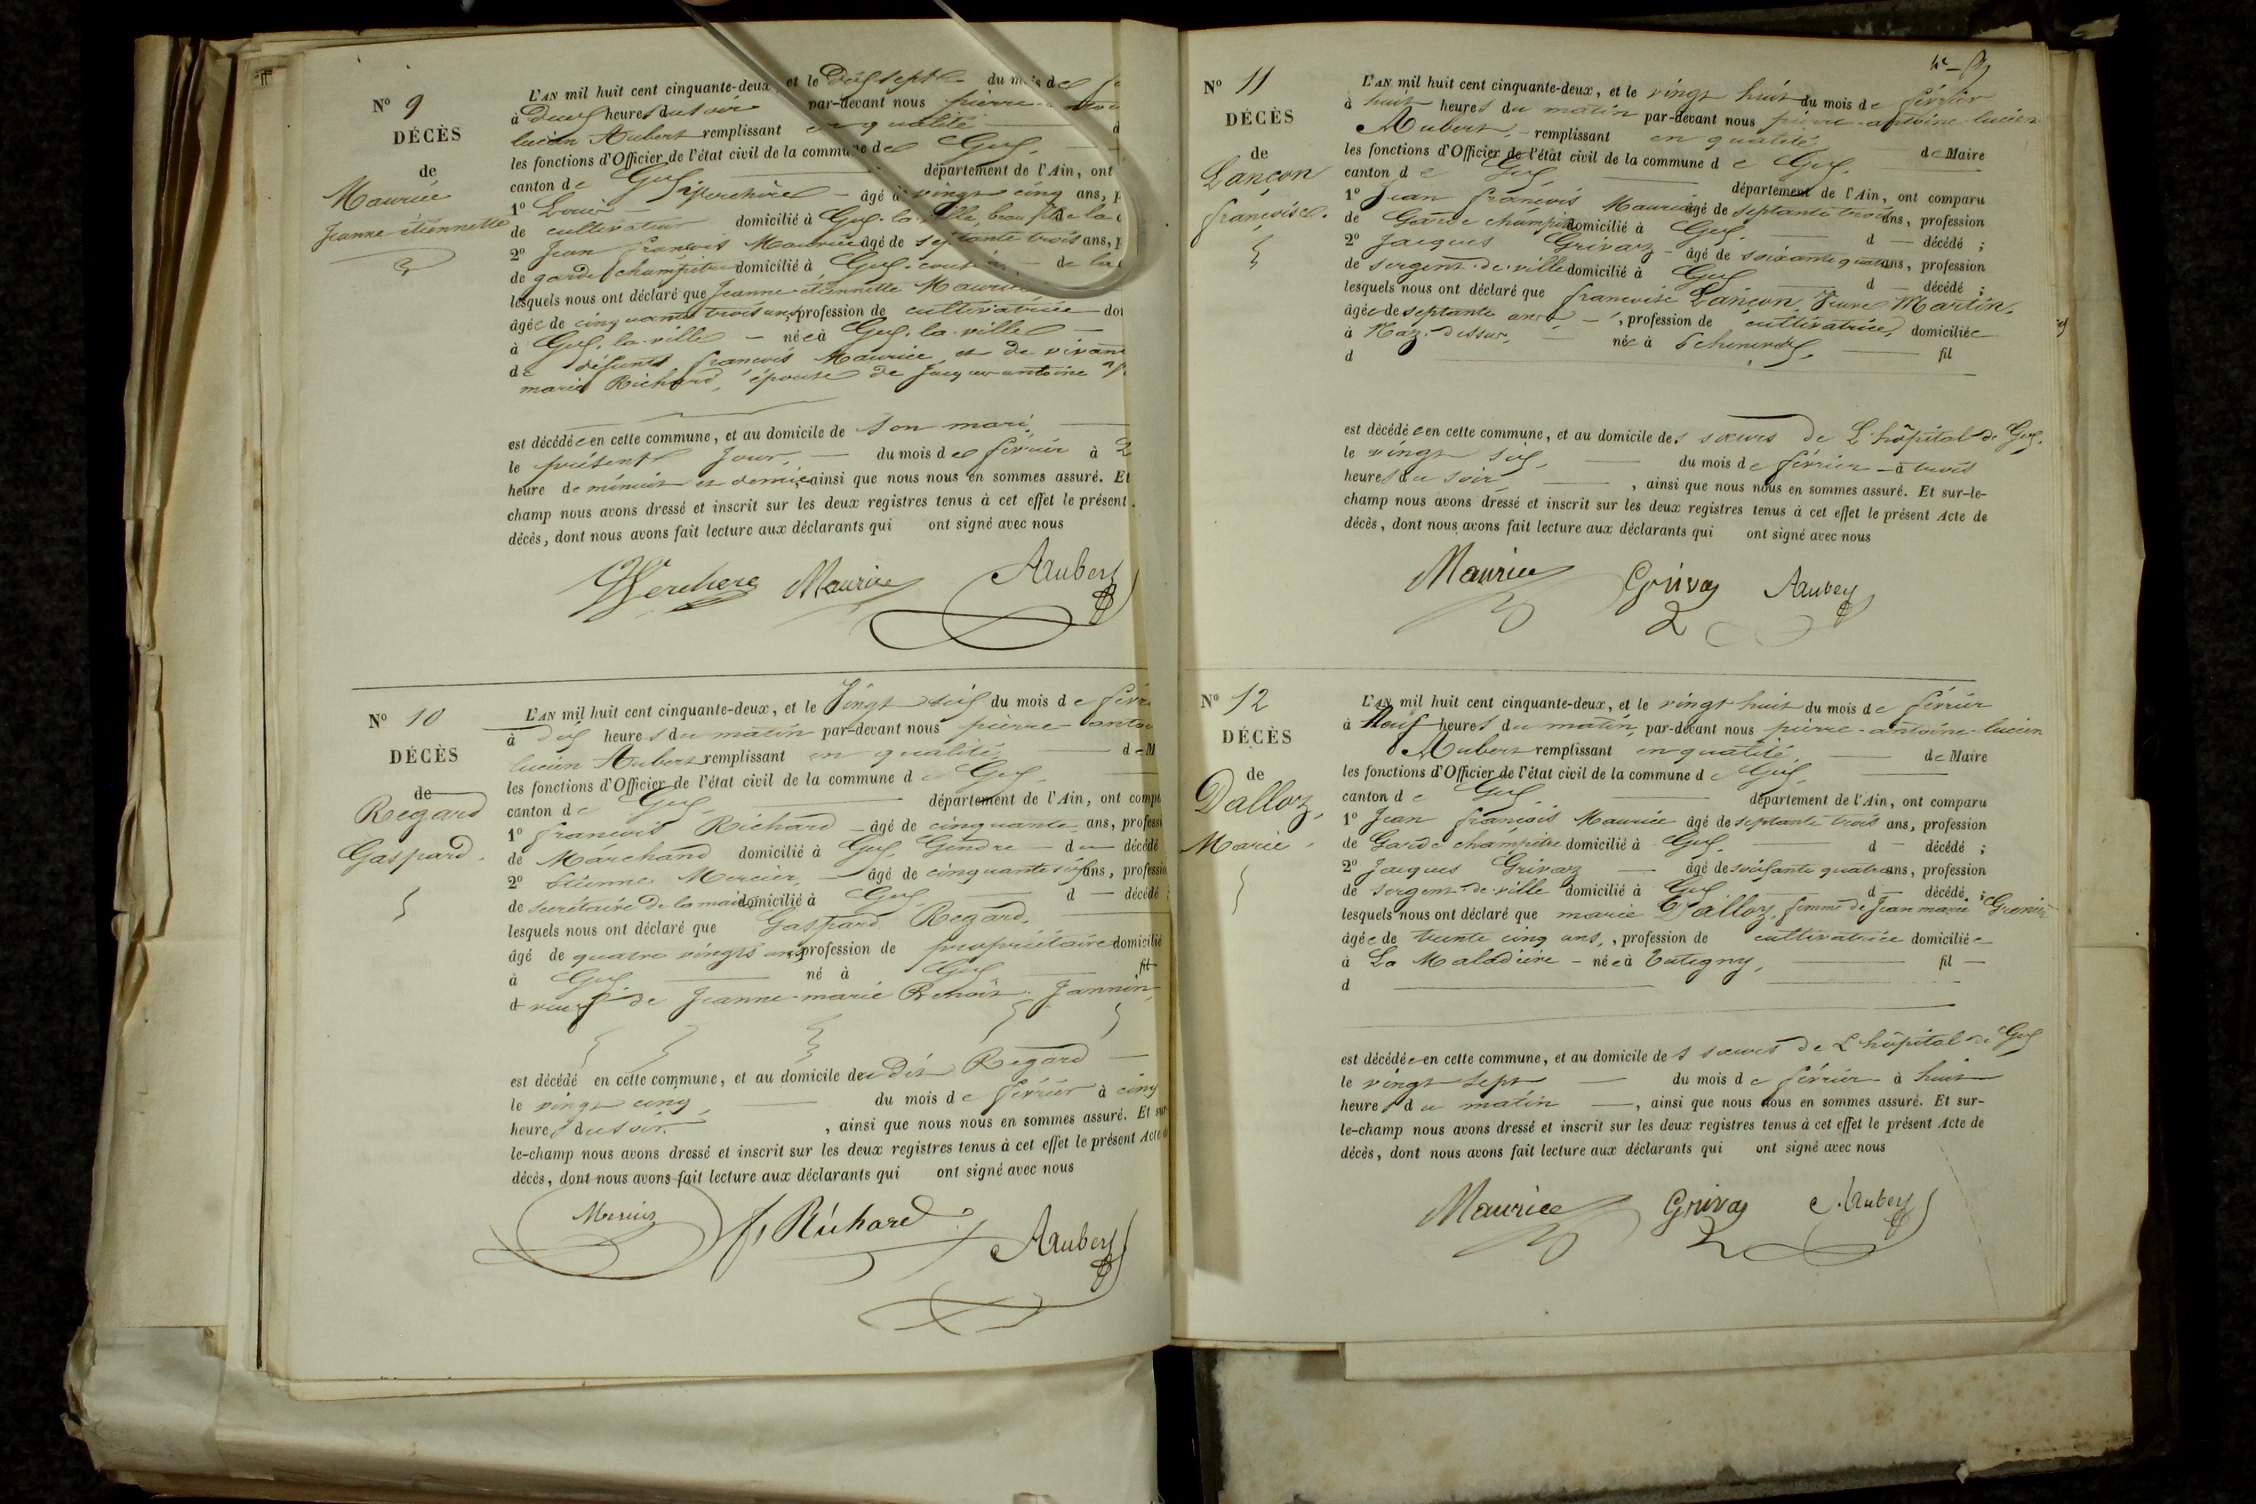 Nº 9
DÉCÈS
de
Maurice
Jeanne étiennette
L'AN mil huit cent cinquante-deux, et le dix sept du mois de
à Deux heures du soir par-devant nous pierre
lucien Aubert remplissant en qualité
les fonctions d'Officier de l'état civil de la commune de Gex.
canton de Gex département de l'Ain, ont
1º Louis âgé de vingt cinq ans,
de cultivateur domicilié à Gex-la-ville, beau fils de la
2º Jean françois Maurice âgé de septante trois ans,
de garde champêtre domicilié à Gex. de la
lesquels nous ont déclaré que Jeanne étiennette Maurice
âgée de cinquante trois ans, profession de cultivatrice
à Gex. la-ville — née à Gex. la-ville —
de défunt françois Maurice, et de vivante
marie Richard, épouse de Jacques antoine
est décédée en cette commune, et au domicile de son mari,
le présent Jour, — du mois de février à 2
heure de minuit et demie, ainsi que nous nous en sommes assuré. Et
champ nous avons dressé et inscrit sur les deux registres tenus à cet effet le présent
décès, dont nous avons fait lecture aux déclarants qui ont signé avec nous
Verchere Maurice AAubert
Nº 10
DÉCÈS
de
Regard
Gaspard.
L'AN mil huit cent cinquante-deux, et le Vingt six du mois de févr
à dix heures du matin par-devant nous pierre antoi
lucien Aubert remplissant en qualité — de M
les fonctions d'Officier de l'état civil de la commune de Gex.
canton de Gex. département de l'Ain, ont compa
1º françois Richard — âgé de cinquante ans, professi
de Marchand domicilié à Gex, Gendre — du décédé
2º Etienne Mercier, — âgé de cinquante six ans, professio
de secrétaire de la mairie domicilié à Gex, — d — décédé ;
lesquels nous ont déclaré que Gaspard Regard,
âgé de quatre vingts ans, profession de propriétaire domicilié
à Gex — né à Gex — fil
d veuf de Jeanne-marie Benoit Jannin,
est décédé en cette commune, et au domicile de dit Regard —
le vingt cinq, — du mois de février à cinq
heures du soir. , ainsi que nous nous en sommes assuré. Et sur
le-champ nous avons dressé et inscrit sur les deux registres tenus à cet effet le présent Acte
décès, dont nous avons fait lecture aux déclarants qui ont signé avec nous
Mercier f, Richard AAubert
Nº 11
DÉCÈS
de
Lançon
françoise.
L'AN mil huit cent cinquante-deux, et le vingt huit du mois de février
à huit heures du matin par-devant nous pierre-antoine-lucien
Aubert — remplissant en qualité de Maire
les fonctions d'Officier de l'état civil de la commune de Gex.
canton de Gex — département de l'Ain, ont comparu
1º Jean françois Maurice âgé de septante trois ans, profession
de Garde champêtre domicilié à Gex. — d — décédé ;
2º Jacques Grivaz — âgé de soixante quatre ans, profession
de sergent-de-ville domicilié à Gex — d — décédé ;
lesquels nous ont déclaré que françoise Lançon, Veuve Martin,
âgée de septante ans — , profession de cultivatrice, domiciliée
à — née à — fil
d
est décédée en cette commune, et au domicile des sœurs de L'hôpital de Gex.
le vingt six, — du mois de février — à trois
heures du soir, — , ainsi que nous nous en sommes assuré. Et sur-le-
champ nous avons dressé et inscrit sur les deux registres tenus à cet effet le présent Acte de
décès, dont nous avons fait lecture aux déclarants qui ont signé avec nous
Maurice Grivaz AAubert
Nº 12
DÉCÈS
de
Dalloz,
Marie.
L'AN mil huit cent cinquante-deux, et le vingt huit du mois de février
à Neuf heures du matin, par-devant nous pierre-antoine-lucien
Aubert remplissant en qualité, — de Maire
les fonctions d'Officier de l'état civil de la commune de Gex,
canton de Gex — département de l'Ain, ont comparu
1º Jean françois Maurice âgé de septante trois ans, profession
de Garde champêtre domicilié à Gex, — d — décédé ;
2º Jacques Grivaz — âgé de soixante quatre ans, profession
de sergent-de-ville domicilié à Gex — d — décédé ;
lesquels nous ont déclaré que marie Dalloz, femme de Jean marie Grenier
âgée de trente cinq ans, , profession de cultivatrice domiciliée
à La Maladière — née à — fil —
d
est décédée en cette commune, et au domicile des sœurs de L'hôpital de Gex
le vingt sept — du mois de février à huit
heures du matin —, ainsi que nous nous en sommes assuré. Et sur-
le-champ nous avons dressé et inscrit sur les deux registres tenus à cet effet le présent Acte de
décès, dont nous avons fait lecture aux déclarants qui ont signé avec nous
Maurice Grivaz AAubert